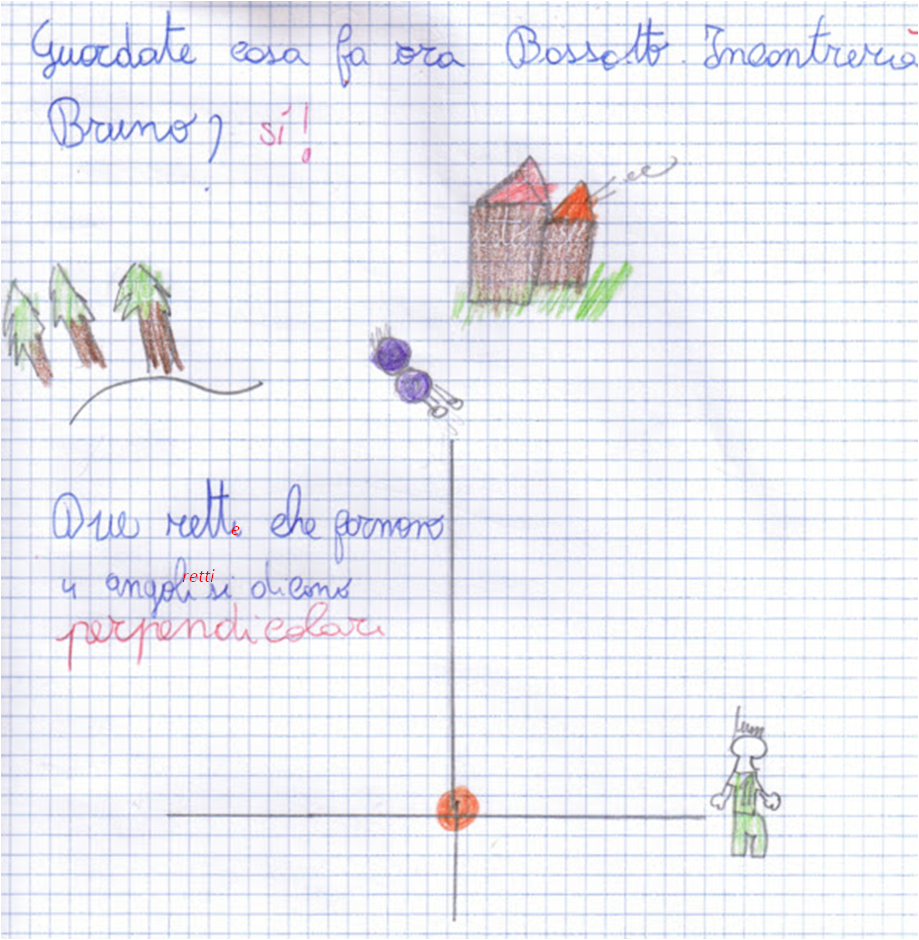 Guardate cosa fa ora Bossotto. Incontrerà
Bruno? sí!
Due rette che formono
4 angoli retti si dicono
perpendicolari